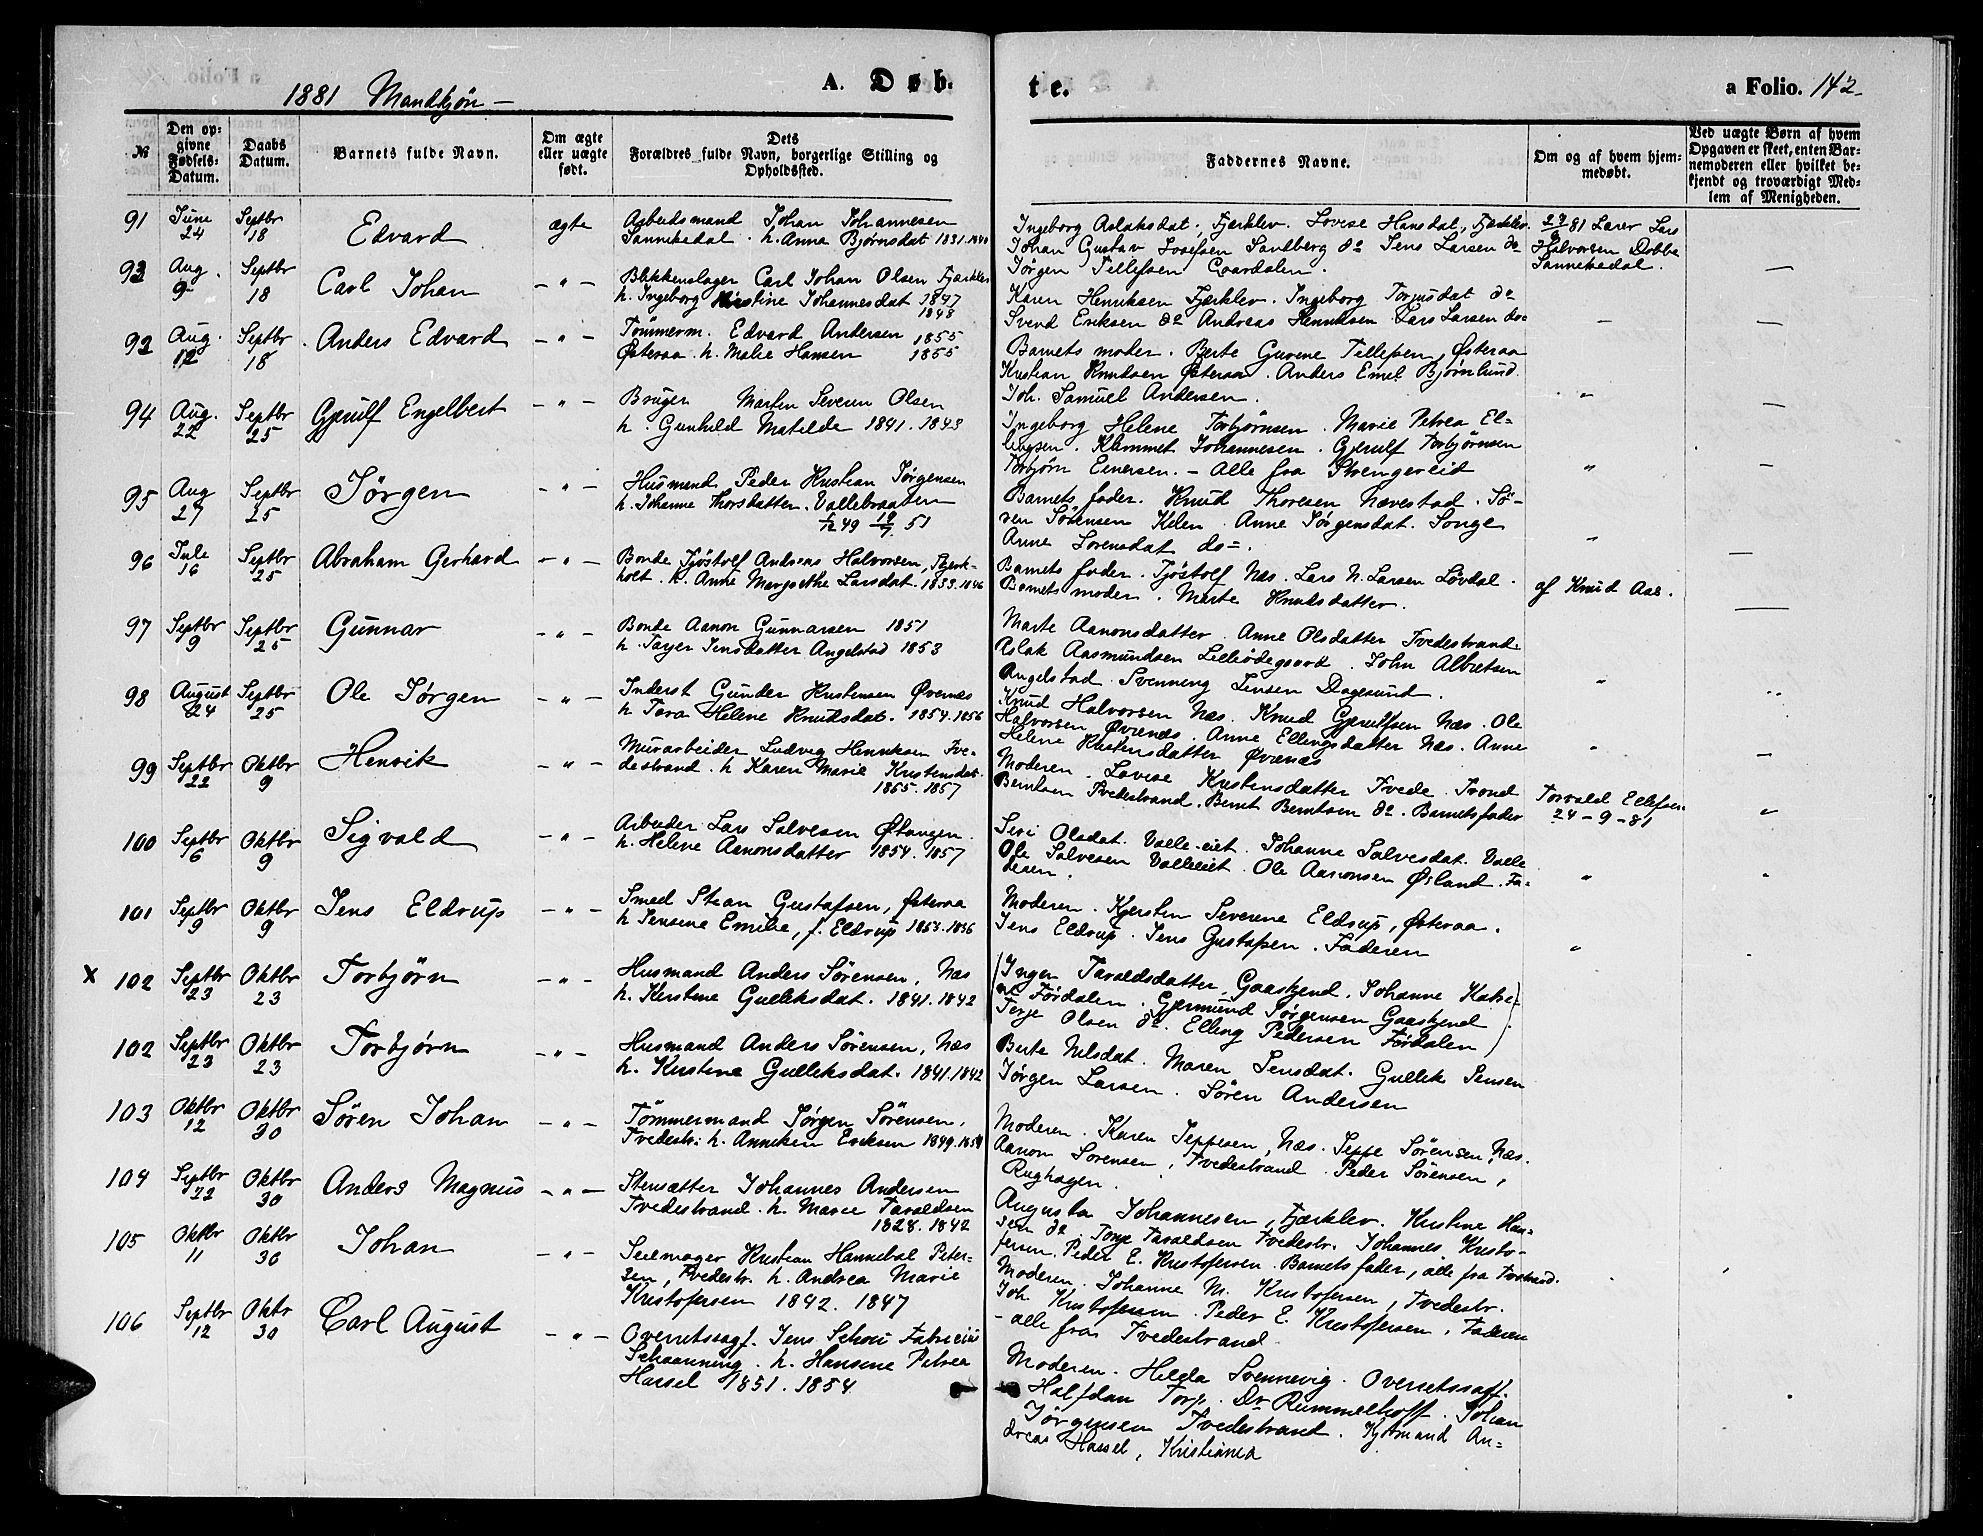 1881 Mandkjøn —
A. Døb-
te.
a Folio. 142
№
Den op-
givne
Fødsels-
Datum.
Daabs
Datum.
Barnets fulde Navn.
Om ægte
eller uægte
født.
Dets
Forældres fulde Navn, borgerlige Stilling og
Opholdssted.
Faddernes Navne.
Om og af hvem hjem-
medøbt.
Ved uægte Børn af hvem
Opgaven er skeet, enten Bar-
nemoderen eller hvilket be-
kjendt og troværdigt Med-
lem af Menigheden.
91 June 24 Septbr 18 Edvard ægte Arbeidsmand Johan Johannesen
Sannikedal. h. Anna Bjørnsdat 1831. 1840
Ingeborg Aslaksdat, Fjærklev. Lovise Hansdat, Fjærklev.
Johan Gustav Josefsen Sandberg do Jens Larsen do
Jørgen Tellefsen
81 Lærer Lars
Halvorsen Dobbe
Sannikedal.
92 Aug. 9 Septbr 18 Carl Johan — " — Blikkenslager Carl Johan Olsen Fjærklev
h. Ingeborg Kirstine Johannesdat 1847
1848
Karen Henriksen Fjærklev. Ingeborg Torjusdat do
Svend Eriksen do Andreas Henriksen Lars Larsen do
93 Aug. 12 Septbr 18 Anders Edvard — " — Tømmerm. Edvard Andersen 1855
Østeraa. h. Malie Hansen 1855
Barnets moder. Berte Gurene Tellefsen, Østeraa
Kristian Knudsen Østeraa. Anders Emil Bjørnlund.
Joh. Samuel Andersen.
94 Aug. 22 Septbr 25 Gjerulf Engelbert — " — Bruger Marten Severin Olsen
h. Gunhild Matilde 1841. 1843
Ingeborg Helene Torbjørnsen. Marie Petrea El-
lingsen. Klemmet Johannesen. Gjerulf Torbjørnsen
Torbjørn Einersen. – Alle fra Strengereid
95 Aug 27 Septbr 25 Jørgen — " — Husmand Peder Kristian Jørgensen
h. Johanne Thorsdatter. Vallebraaten
1/12 49 19/7 51
Barnets fader. Knud Thoresen Nævestad. Sö-
ren Sørensen Kilen. Anne Jørgensdat. Songe
Anne Sorensdat do.
96 Jule 16 Septbr 25 Abraham Gerhard — " — Bonde Tjöstolf Andreas Halvorsen, Bjerk-
holt. h. Anne Margrethe Larsdat. 1833. 1846
Barnets fader. Tjöstolf Næs. Lars N. Larsen Lövdal.
Barnets moder. Marte Knudsdatter.
af Knud Aas.
97 Septbr 9 Septbr 25 Gunnar — " — Bonde Aanon Gunnarsen 1851
h. Tayer Jensdatter Angelstad 1853
Marte Aanonsdatter. Anne Olsdatter Tvedestrand.
Aslak Aasmundsen Lilleødegaard. John Albretsen
Angelstad. Svenning Jensen Dagesund.
98 August 24 Septbr 25 Ole Jørgen — " — Inderst Gunder Kristensen Øvernes
h Tara Helene Knudsdat. 1854. 1856
Knud Halvorsen Næs. Knud Gjerulfsen Næs. Ole
Halvorsen Øvrenæs. Anne Ellingsdatter Næs. Anne
Helene Kristensdatter Øvrenæs
99 Septbr 22 Oktbr 9 Henrik — " — Murarbeider Ludvig Henriksen Tve-
destrand. h Karen Marie Kristensdat.
1855. 1857
Moderen. Lovise Kristensdatter Tvede. Trond
Berntsen Tvedestrand. Bernt Berntsen do. Barnets fader
Torvald Ellefsen
24 – 9 – 81
100 Septbr 6 Oktbr 9 Sigvald — " — Arbeider Lars Salvesen Østangen.
h. Helene Aanonsdatter 1854. 1857
Siri Olsdat. Valle-eiet. Johanne Salvesdat. Valle
Ole Salvesen Valleeiet. Ole Aaronsen Øsland. Fa-
deren.
101 Septbr 9 Oktbr 9 Jens Eldrup — " — Smed Stian Gustafsen, Østeraa
h Jensine Emilie, f. Eldrup 1853. 1856
Moderen. Kjersten Severine Eldrup, Østeraa.
Jens Eldrup. Jens Gustafsen. Faderen
X 102 Septbr 23 Oktbr 23 Torbjørn — " — Husmand Anders Sørensen, Næs
h. Kirstine Gulliksdat. 1841. 1842
(Inger Taraldsdatter, Gaaskjend. Johanne Katri-
ne Fördalen. Gjermund Jørgensen Gaaskjend.
Terje Olsen do. Elling Pedersen Fördalen)
102 Septbr 23 Oktbr 23 Torbjørn — " — Husmand Anders Sørensen, Næs
h. Kirstine Gulliksdat. 1841. 1842
Berte Nilsdat. Maren Jensdat. Gullik Jensen
Jørgen Larsen. Sören Andersen
103 Oktbr 12 Oktbr 30 Sören Johan — " — Tömmermand Jørgen Sörensen.
Tvedestr. h. Anneken Eriksen 1849. 1854
Moderen. Karen Jeppesen, Næs. Jeppe Sörensen, Næs.
Aanon Sorensen, Tvedestrand. Peder Sörensen,
Rughagen.
104 Septbr 22 Oktbr 30 Anders Magnus — " — Stensætter Johannes Andersen
Tvedestrand. h. Marie Taraldsen
1828. 1842
Augusta Johannesen, Fjærklev. Kristine Han-
sen do. Torje Taraldsen Tvedestr. Johannes Kristo-
fersen. Peder E. Kristofersen. Barnets fader, alle fra Tvestrand.
105 Oktbr 11 Oktbr 30 Johan — " — Seilmager Kristian Hannibal Peter-
sen, Tvedestr. h. Andrea Marie
Kristofersen 1842. 1847
Moderen. Johanne M. Kristofersen, Tvedestr.
Joh. Kristofersen. Peder E. Kristofersen. Faderen
– alle fra Tvedestrand.
106 Septbr 12 Oktbr 30 Carl August — " — Overretssagf. Jens Schou Fabricius
Schaanning. h. Hansine Petrea
Hassel 1851. 1854
Moderen. Helda Svennevig. Overretssagf.
Halfdan Torp. Dr Rummelhoff. Johan
Jørgensen Tvedestrand. Kjøbmand An-
dreas Hassel, Kristiania